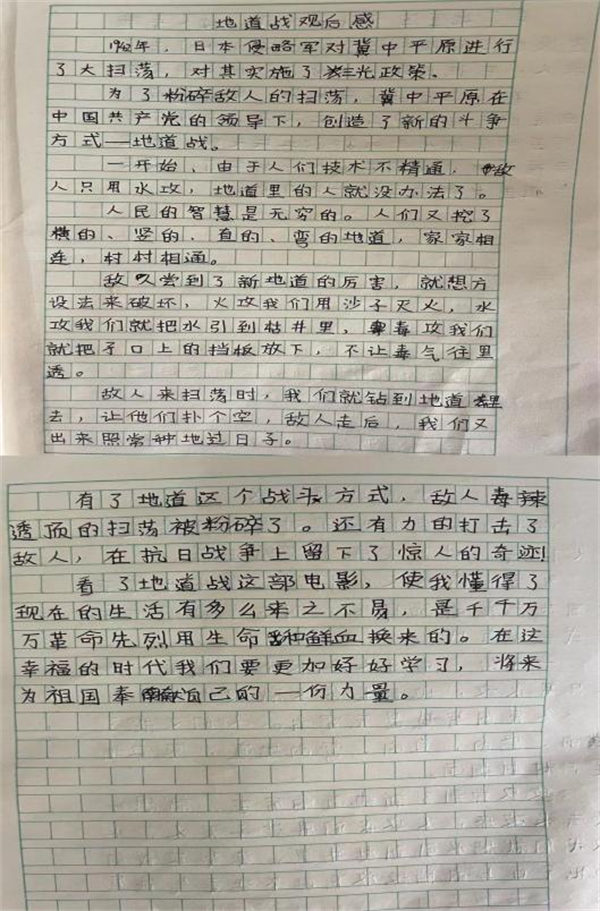 地道战观后感
1942年，日本侵略军对冀中平原进行
了大扫荡，对其实施了三光政策。
为了粉碎敌人的扫荡，冀中平原在
中国共产党的领导下，创造了新的斗争
方式—地道战。
一开始、由于人们技术不精通，敌
人只用水攻，地道里的人就没办法了。
人民的智慧是无穷的。人们又挖了
横的、竖的、直的、弯的地道，家家相
连，村村相通。
敌人尝到了新地道的厉害，就想方
设法来破坏，火攻我们用沙子灭火，水
攻我们就把水引到枯井里，毒攻我们
就把孑口上的挡板放下，不让毒气往里
透。
敌人来扫荡时，我们就钻到地道里
去，让他们扑个空，敌人走后，我们又
出来照常种地过日子。
有了地道这个战斗方式，敌人毒辣
透顶的扫荡被粉碎了。还有力的打击了
敌人，在抗日战争上留下了惊人的奇迹!
看了地道战这部电影，使我懂得了
现在的生活有多么来之不易，是千千万
万革命先烈用生命和鲜血换来的。在这
幸福的时代我们要更加好好学习，将来
为祖国奉献自己的一份力量。